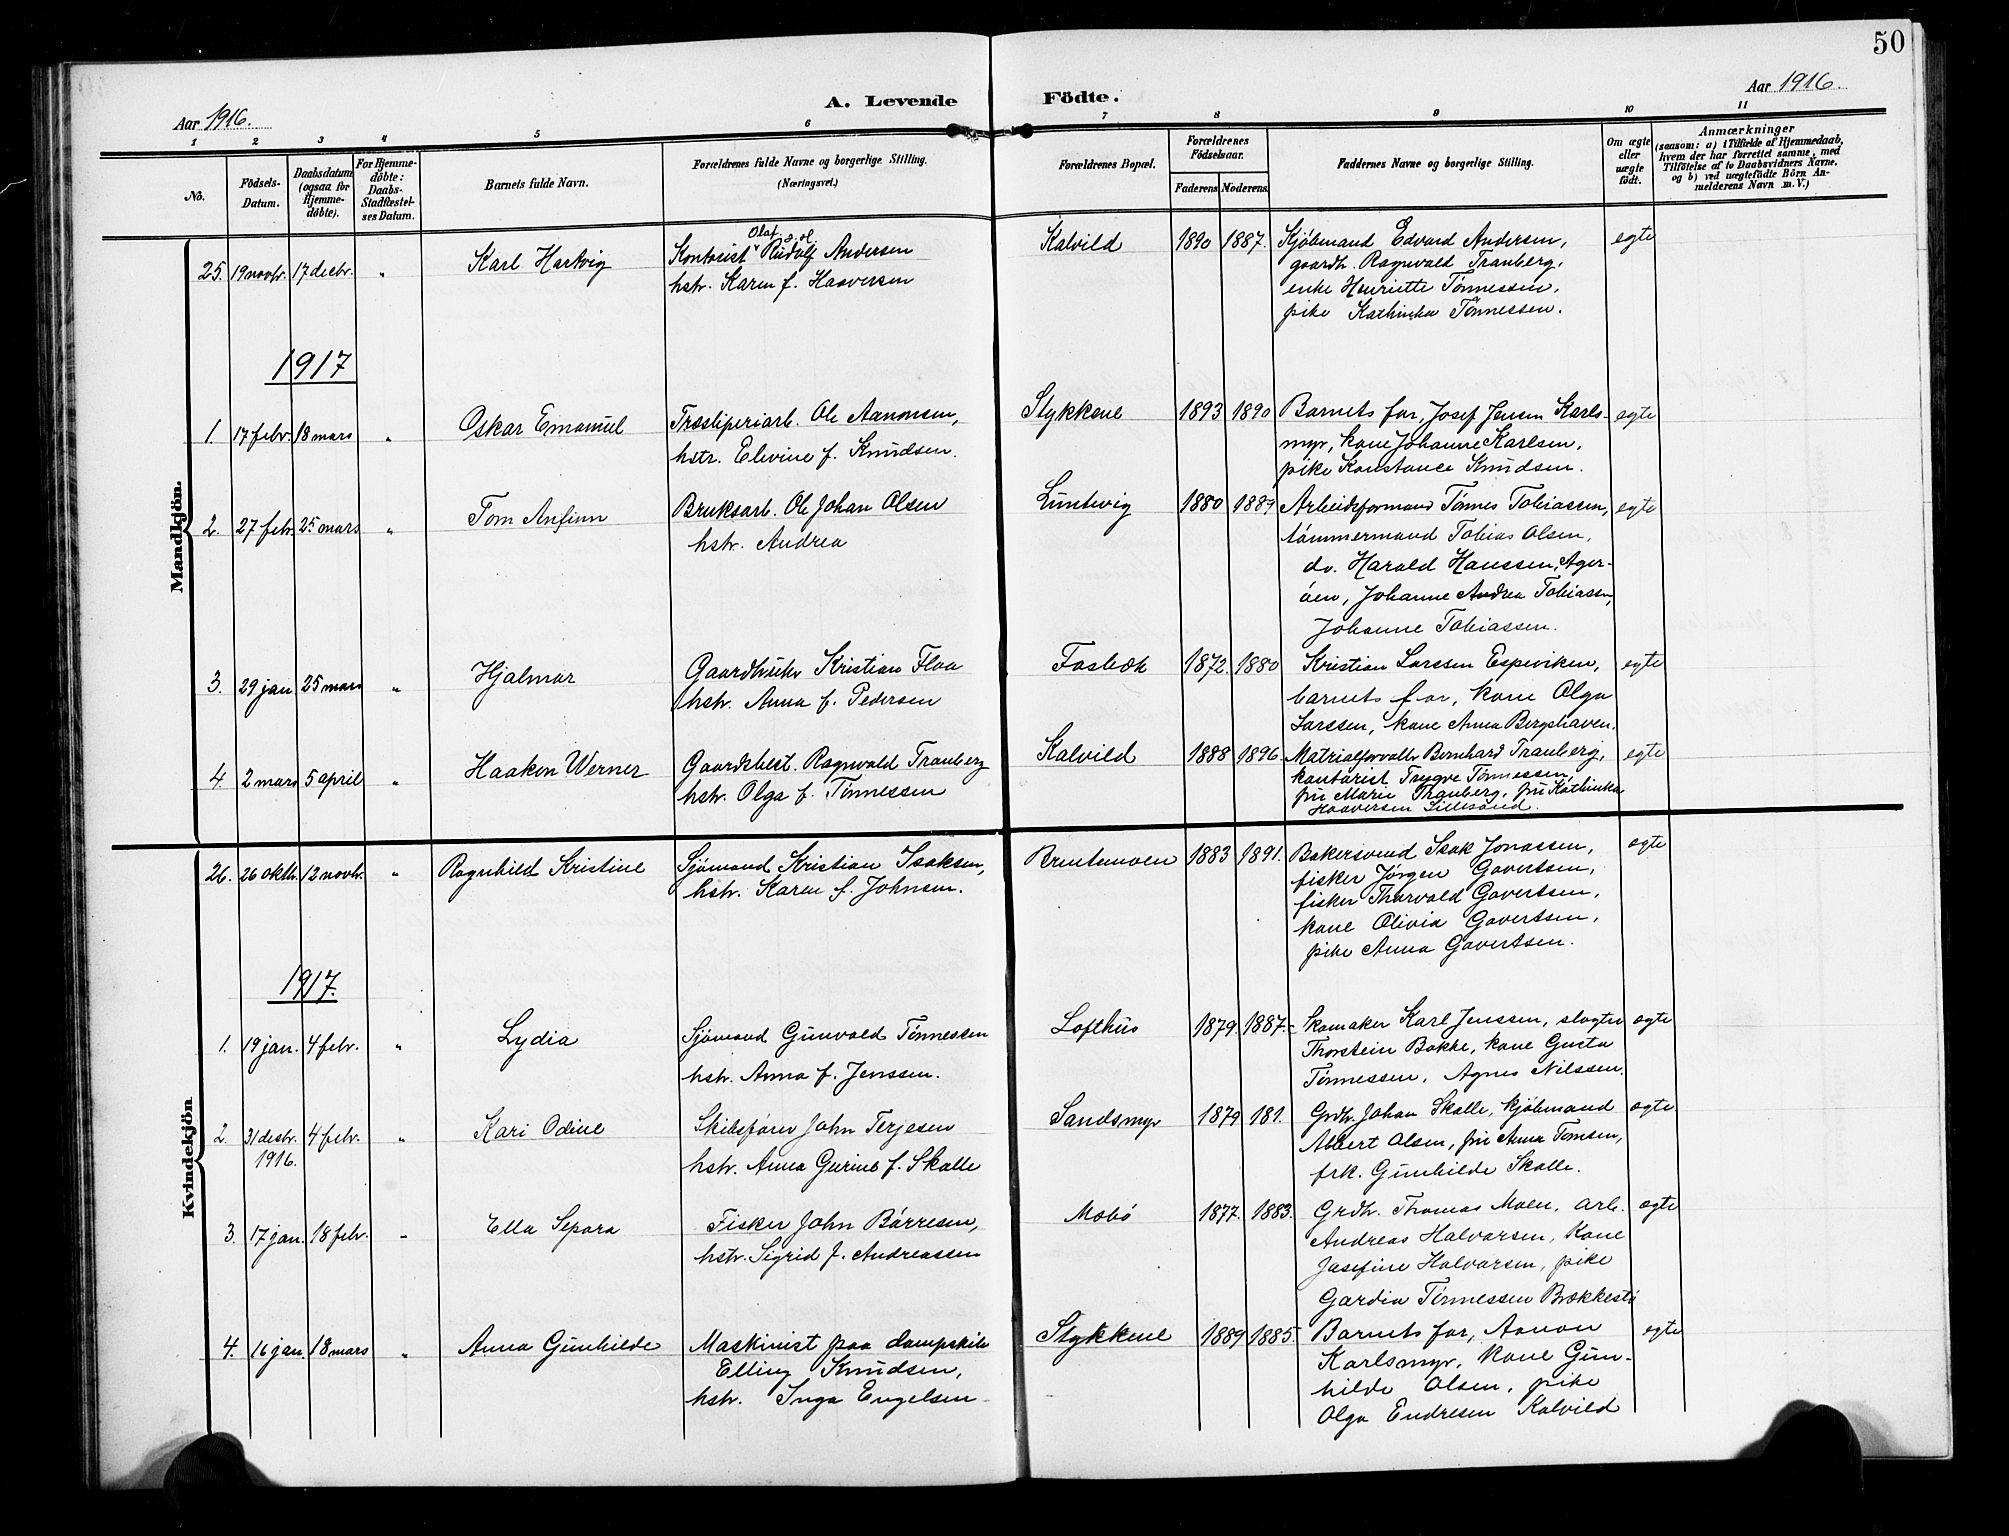 50
Aar 1916.
A. Levende Födte.
Aar 1916.
1 2 3 4 5 6 7 8 9 10 11
No.
Födsels-
Datum.
Daabsdatum
(ogsaa for
Hjemme-
döbte).
For Hjemme-
döbte:
Daabs-
Stadfæstel-
ses Datum.
Barnets fulde Navn.
Forældrenes fulde Navne og borgerlige Stilling.
(Næringsvei.)
Forældrenes Bopæl.
Forældrenes
Födselsaar.
Faderens. Moderens.
Faddernes Navne og borgerlige Stilling.
Om ægte
eller
uægte
födt.
Anmærkninger
(saasom: a) i Tilfælde af Hjemmedaab,
hvem der har forrettet samme, med
Tilföielse af to Daabsvidners Navne,
og b) ved uægtefödte Börn An-
melderens Navn m. V.)
Mandkjön.
25. 19 novbr. 17 decbr. " Karl Hartvig
Olaf
Kontorist Rudolf Andersen
hstr. Karen f. Haaversen
Kalvild 1890 1887.
Kjøbmand Edvard Andersen,
gaardb. Ragnvald Tranberg,
enke Henriette Tønnessen,
pike Kathinka Tønnessen.
egte
1917
1. 17 febr. 18 mars " Oskar Emanuel
Træsliperiarb. Ole Aanonsen,
hstr. Elevine f. Knudsen.
Stykkene 1893 1890
Barnets far, Josef Jensen Karls-
myr, kone Johanne Karlsen,
pike Konstance Knudsen.
egte
2. 27 febr 25 mars " Tom Anfinn
Bruksarb. Ole Johan Olsen
hstr. Andrea
Luntevig 1880 1889
Arbeidsformand Tønnes Tobiassen,
tømmermand Tobias Olsen,
do. Harald Hanssen, Ager-
øen, Johanne Andrea Tobiassen,
Johanne Tobiassen.
egte
3. 29 jan 25 mars " Hjalmar
Gaardbruker Kristian Flaa
hstr. Anna f. Pedersen
Fosbæk 1872. 1880
Kristian Larssen Espeviken,
barnets far, kone Olga
Larssen, kone Anna Bergshaven.
egte
4. 2 mars 5 april " Haakon Werner
Gaardsbest. Ragnvald Tranberg
hstr. Olga f. Tønnessen
Kalvild 1888 1896.
Matrialforvalter Bernhard Tranberg,
kontorist Trygve Tønnessen,
fru Marie Tranberg, fru Kathinka
Haaversen Lillesand.
egte
Kvindekjön
26. 26 oktbr. 12 novbr. " Ragnhild Kristine
Sjømand Kristian Isaksen,
hstr. Karen f. Johnsen.
Brentemoen 1883 1891.
Bakersvend Isak Jonassen,
fisker Jørgen Govertsen,
fisker Thorvald Govertsen,
kone Olivia Govertsen,
pike Anna Govertsen.
egte
1917.
1. 19 jan. 4 febr. " Lydia
Sjømand Gunvald Tønnessen
hstr. Anna f. Jenssen.
Lofthus 1879. 1887.
Skomaker Karl Jenssen, slagter
Thorstein Bakke, kone Gusta
Tønnessen, Agnes Nilssen.
egte
2. 31 desbr. 1916. 4 febr. " Kari Odine
Skibsfører John Terjesen
hstr. Anna Gurine f. Skalle
Sandsmyr 1879 181.
Grdbr. Johan Skalle, kjøbmand
Albert Olsen, fru Anna Tomsen,
frk. Gunhilde Skalle.
egte
3. 17 jan. 18 febr. " Ella Sepora
Fisker John Børresen,
hstr. Sigrid f. Andreassen
Mebø 1877. 1883.
Grdbr. Thomas Moen, arb.
Andreas Halvorsen, kone
Josefine Halvorsen, pike
Gardia Tønnessen Brækkestø
egte
4. 16 jan. 18 mars " Anna Gunhilde
Maskinist paa dampskib
Elling Knudsen,
hstr. Inga Engelsen
Stykkene 1889 1885.
Barnets far, Aanon
Karlsmyr, kone Gun-
hilde Olsen, pike
Olga Endresen Kalvild
egte